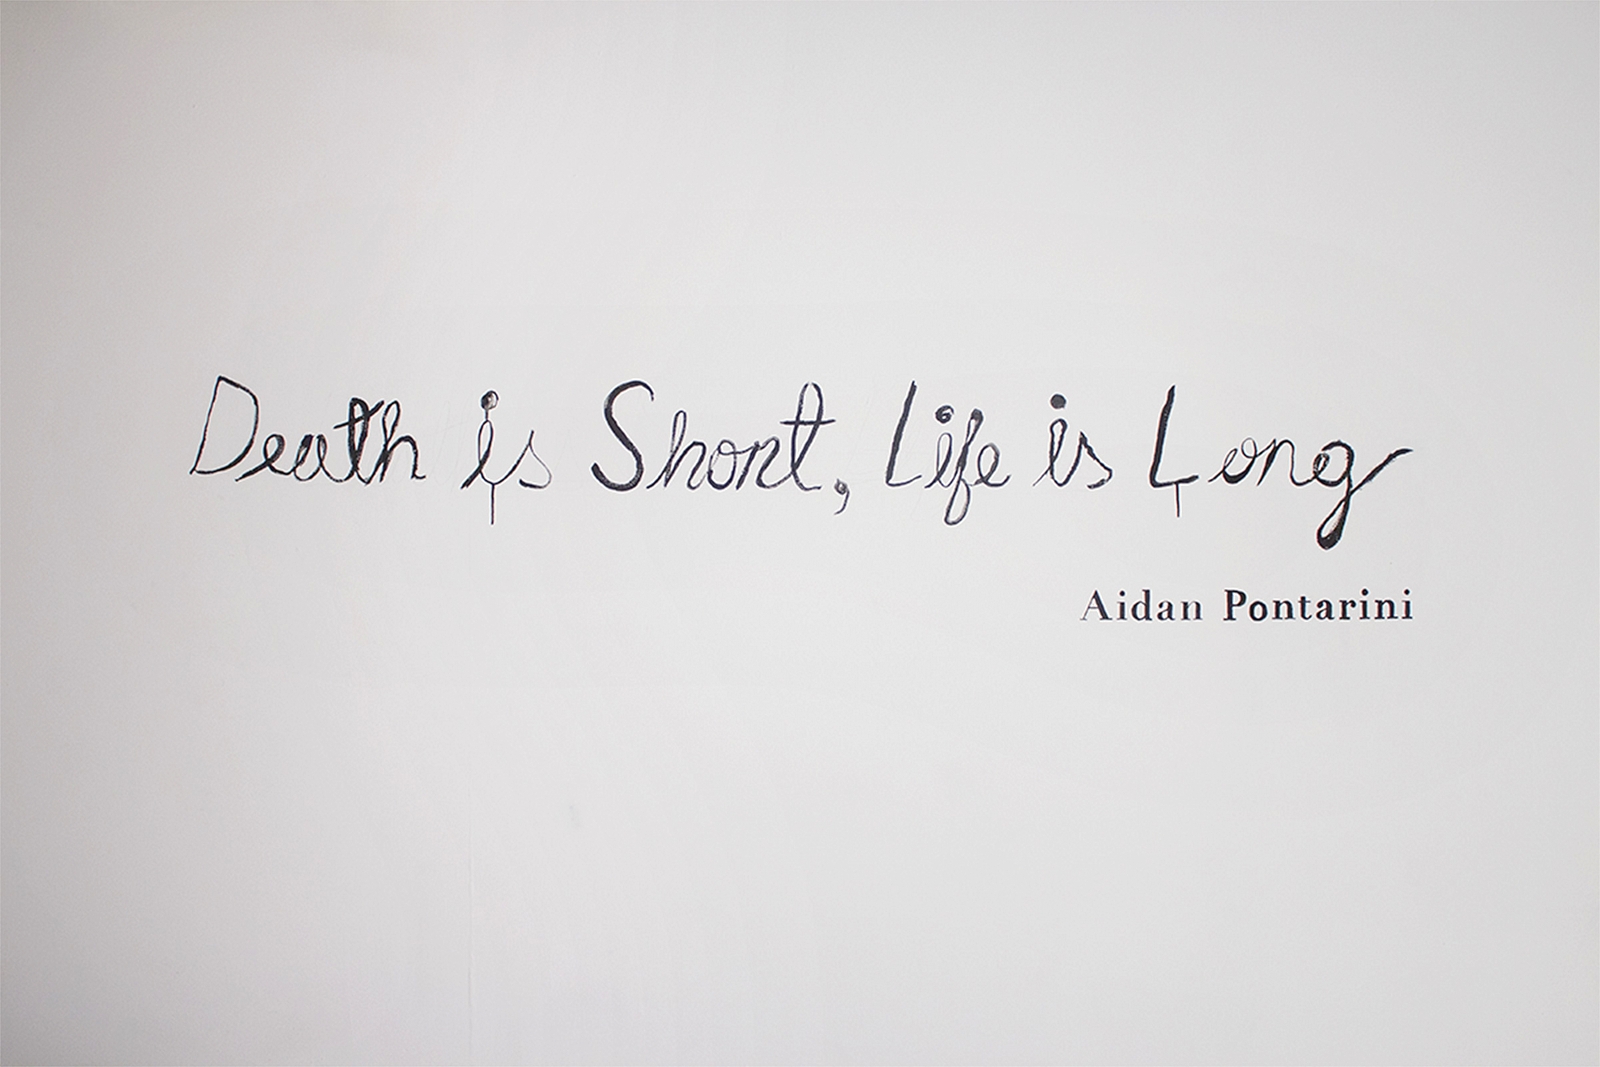 Death is Short, Life is Long
Aidan Pontarini